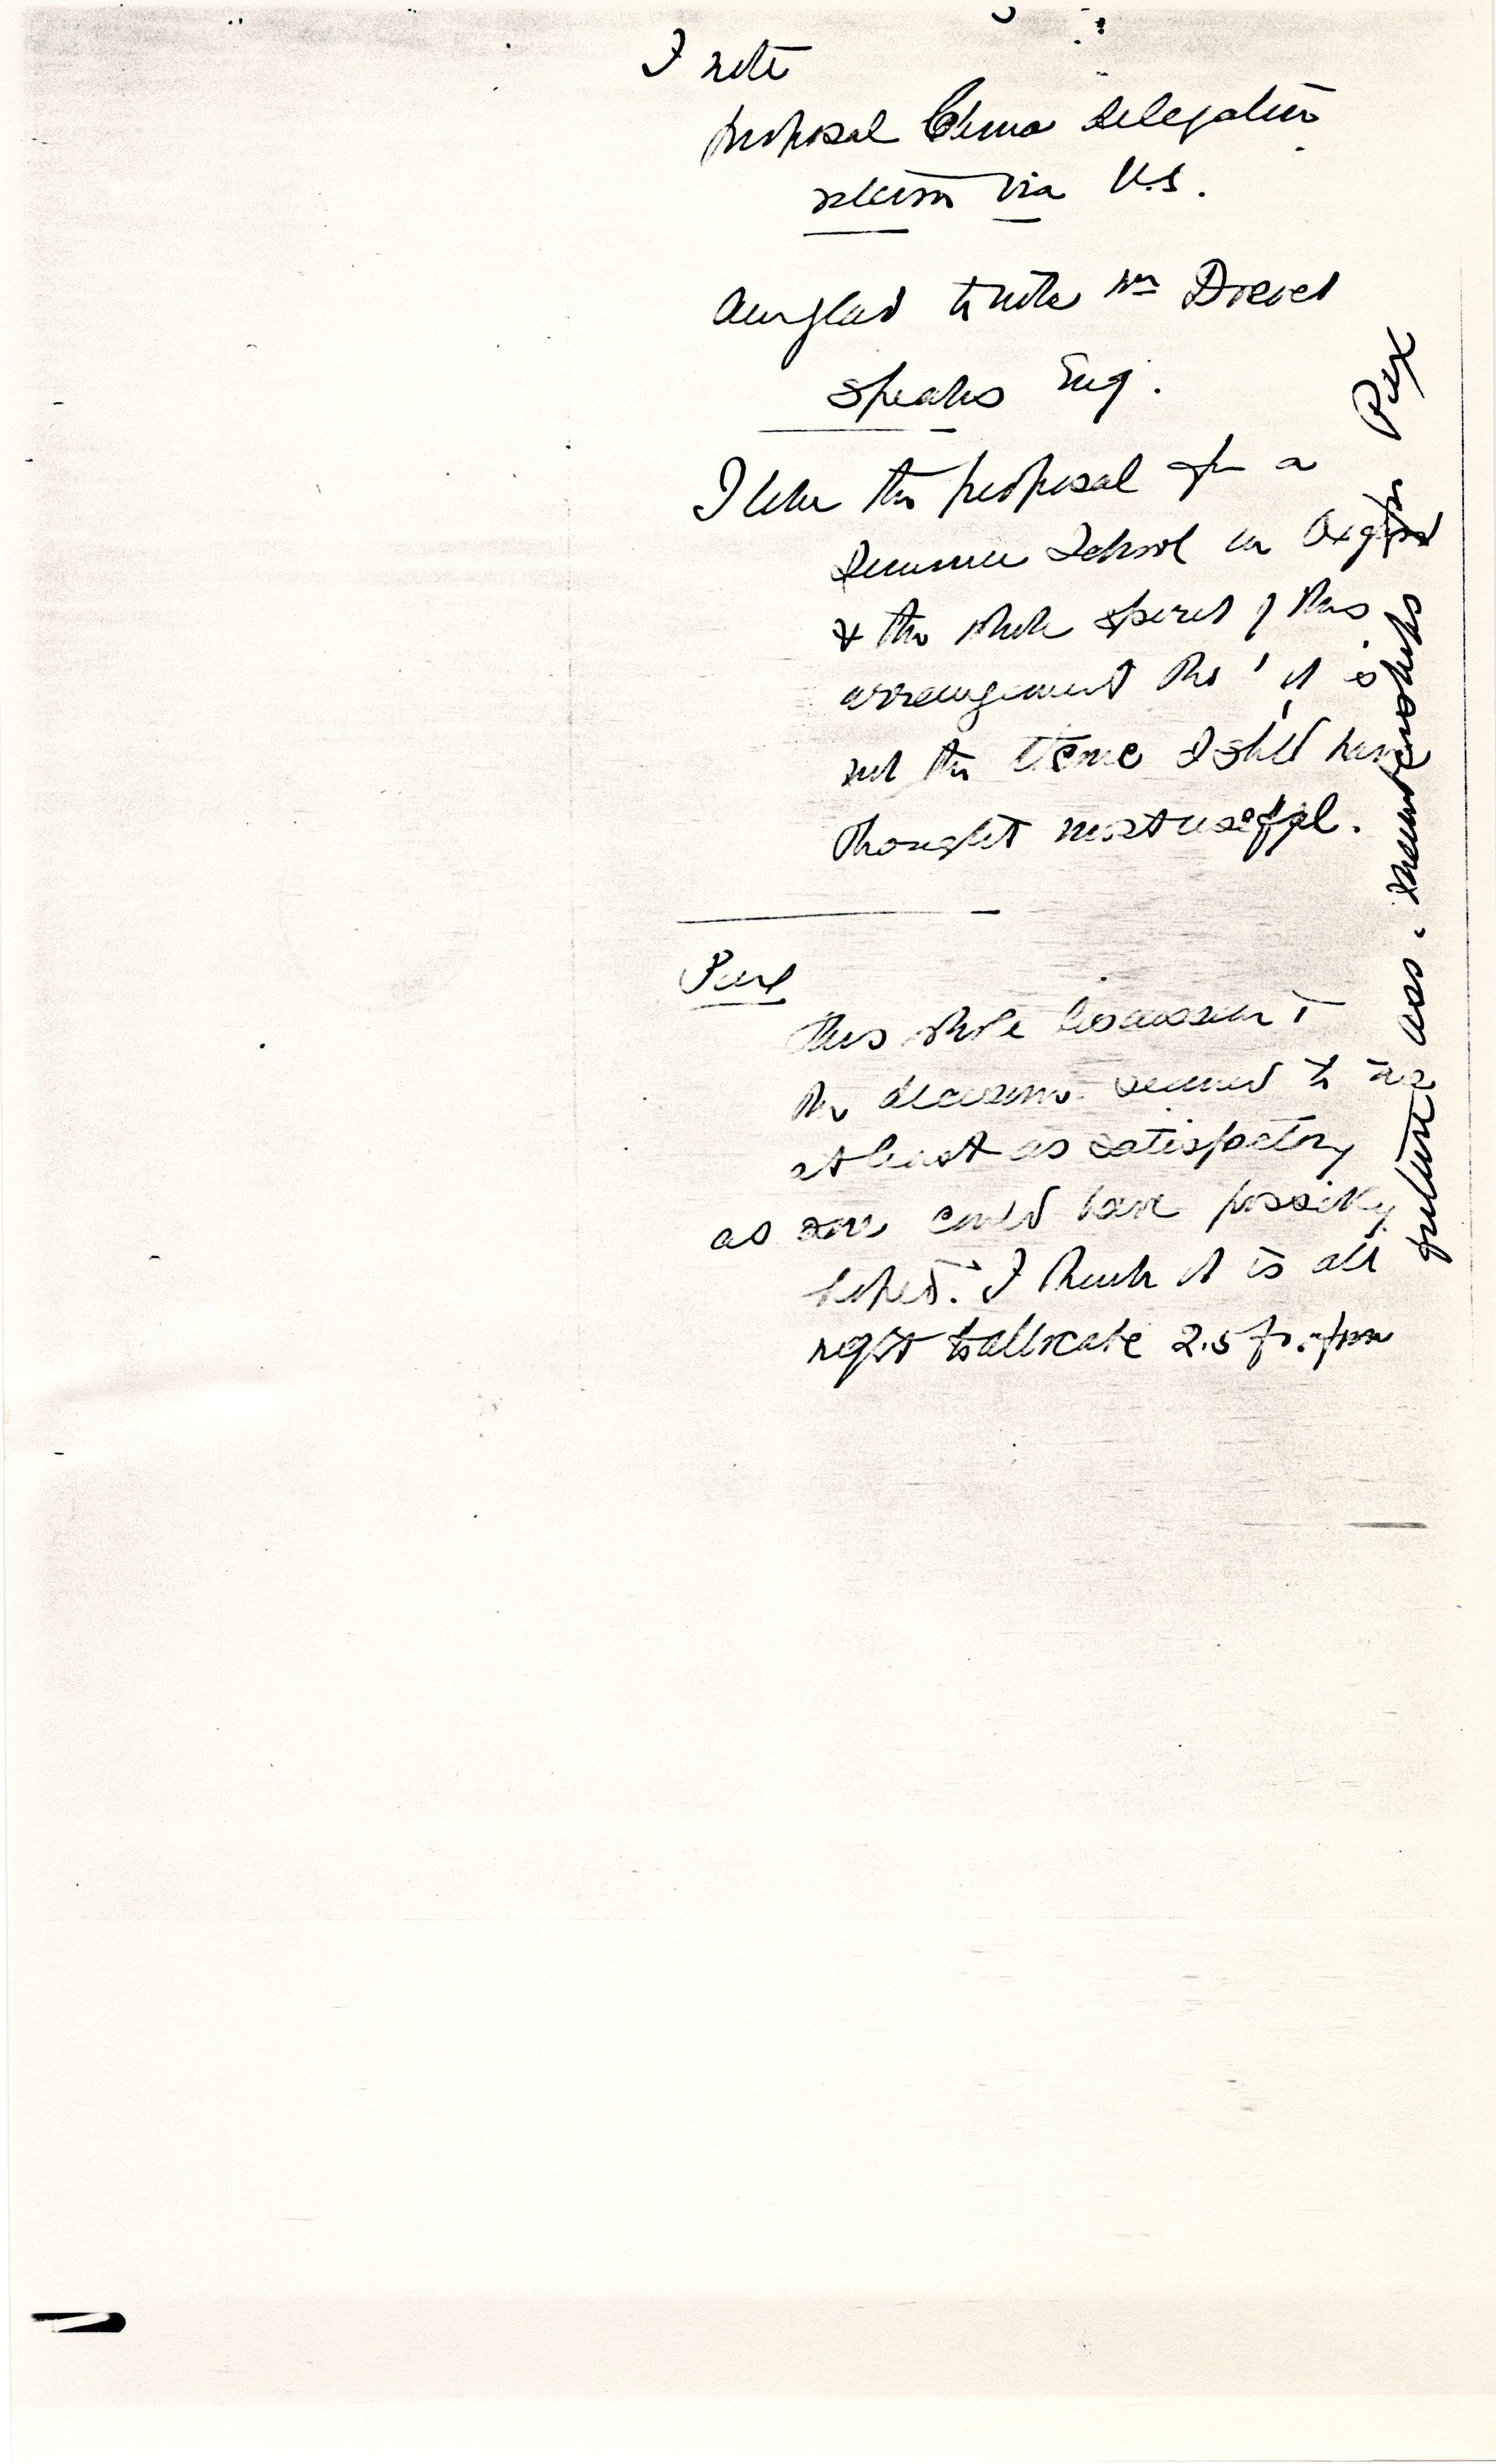 I note
proposal China delegation
return via U.S.
Am glad to note Mr Drevet
speaks Eng.
I like the proposal for a
Summer School in Oxford
& the whole spirit of this
arrangement tho' it is
not the time I shld have
thought most useful.
This whole discussion &
the decisions seemed to me
at least as satisfactory
as one could have possibly
hoped. I think it is all
right to allocate 2.5 fr. from
future ass. memberships for